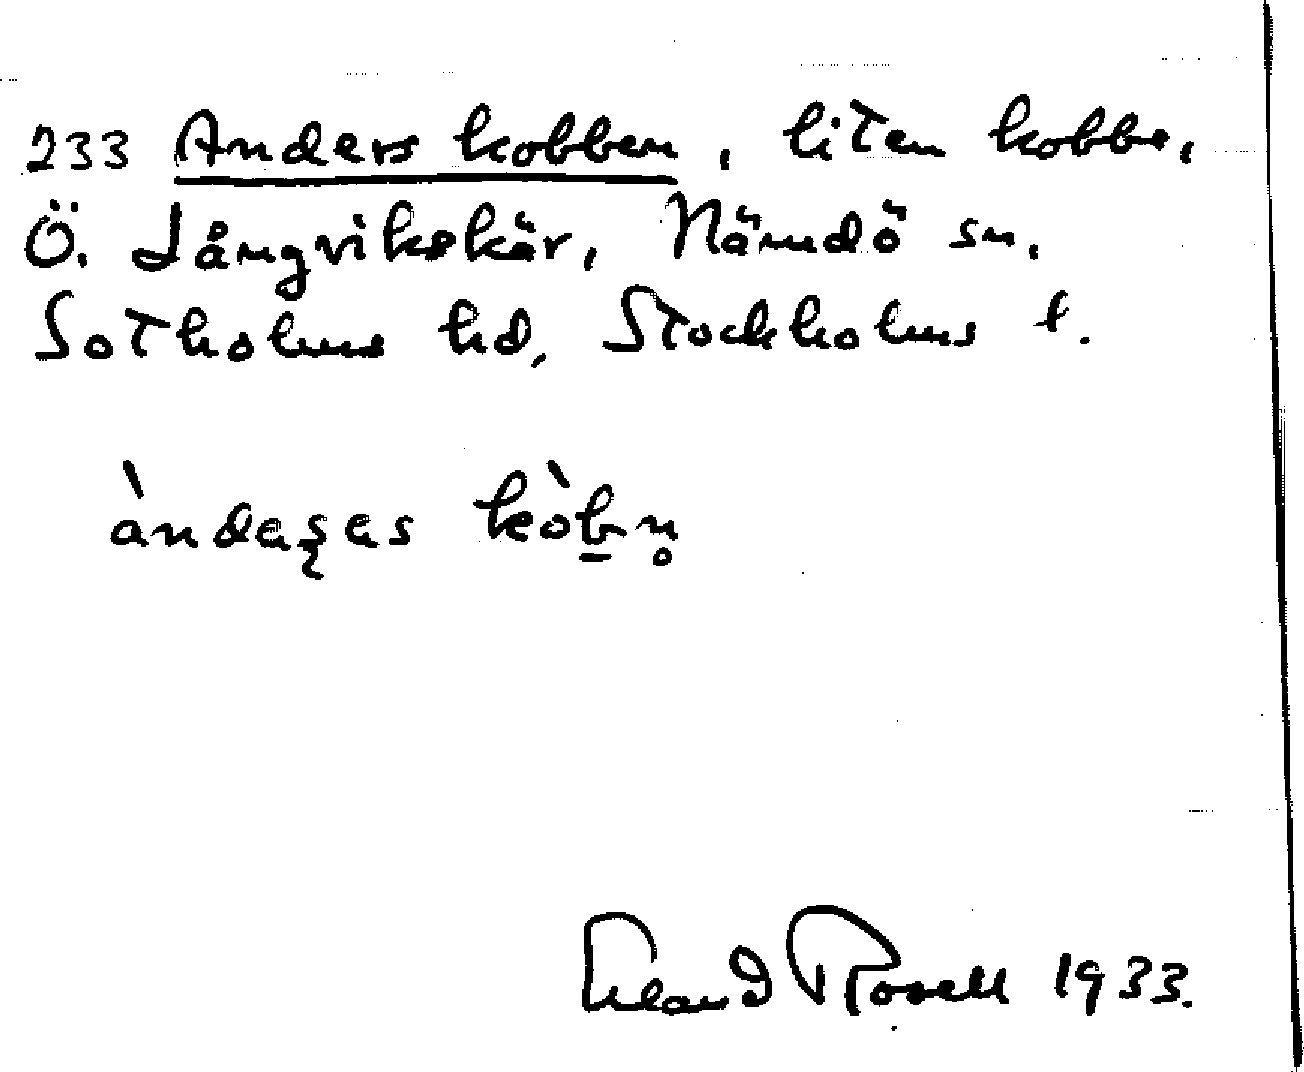 233 Anders kobben, liten kobbe,
Ö. Långvikskär, Nämdö sn.
Sotholms hd, Stockholms l.
àndaşas kòb̲n̥
Erland Rosell 1933.